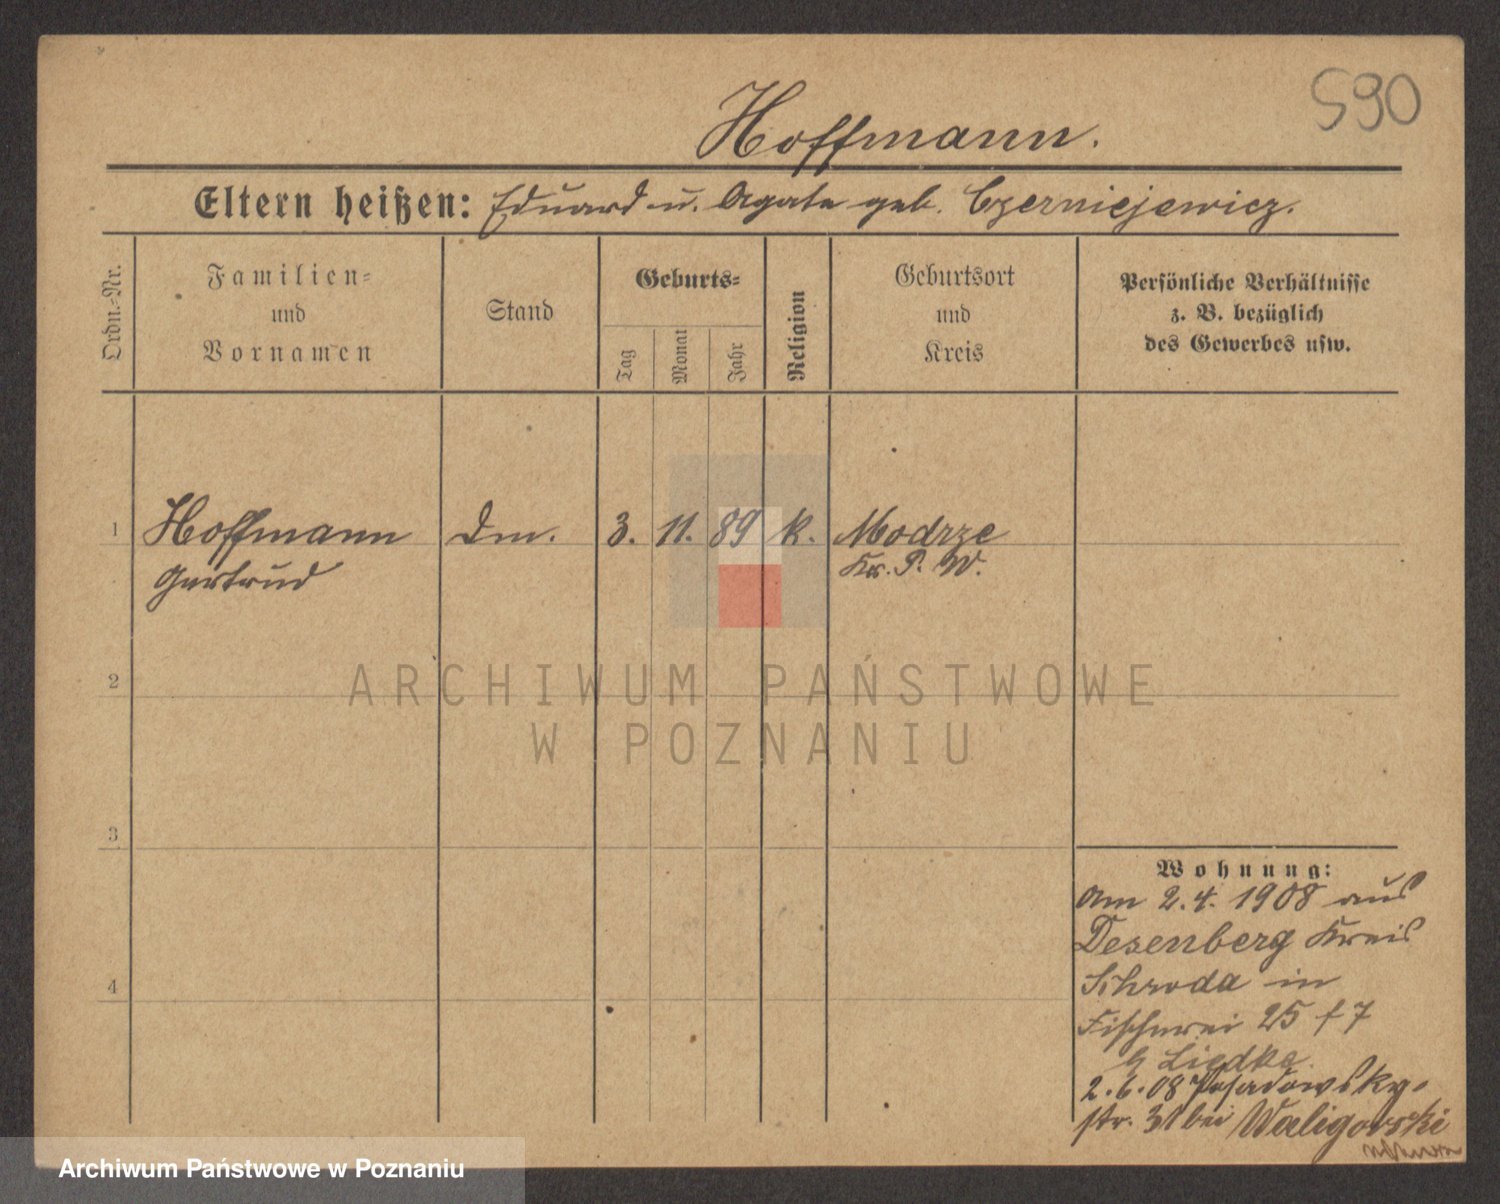 590
Hoffmann.
Eltern heißen: Eduard u. Agate geb. Czerniejewicz.
Ordn.-Nr.
Familien-
und
Vornamen
Stand
Geburts-
Tag
Monat
Jahr
Religion
Geburtsort
und
Kreis
Persönliche Verhältnisse
z. B. bezüglich
des Gewerbes usw.
1 Hoffmann Dm. 3. 11. 89 k. Modrze
Gertrud Kr. P. W.
2
ARCHIWUM PAŃSTWOWE
W POZNANIU
3
Wohnung:
Am 2.4. 1908 aus
Desenberg Kreis
Schroda in
Fischerei 25 f 7
b Liedke.
2.6.08 Posadowsky-
str. 31 bei Waligorski
Archiwum Państwowe w Poznaniu
4